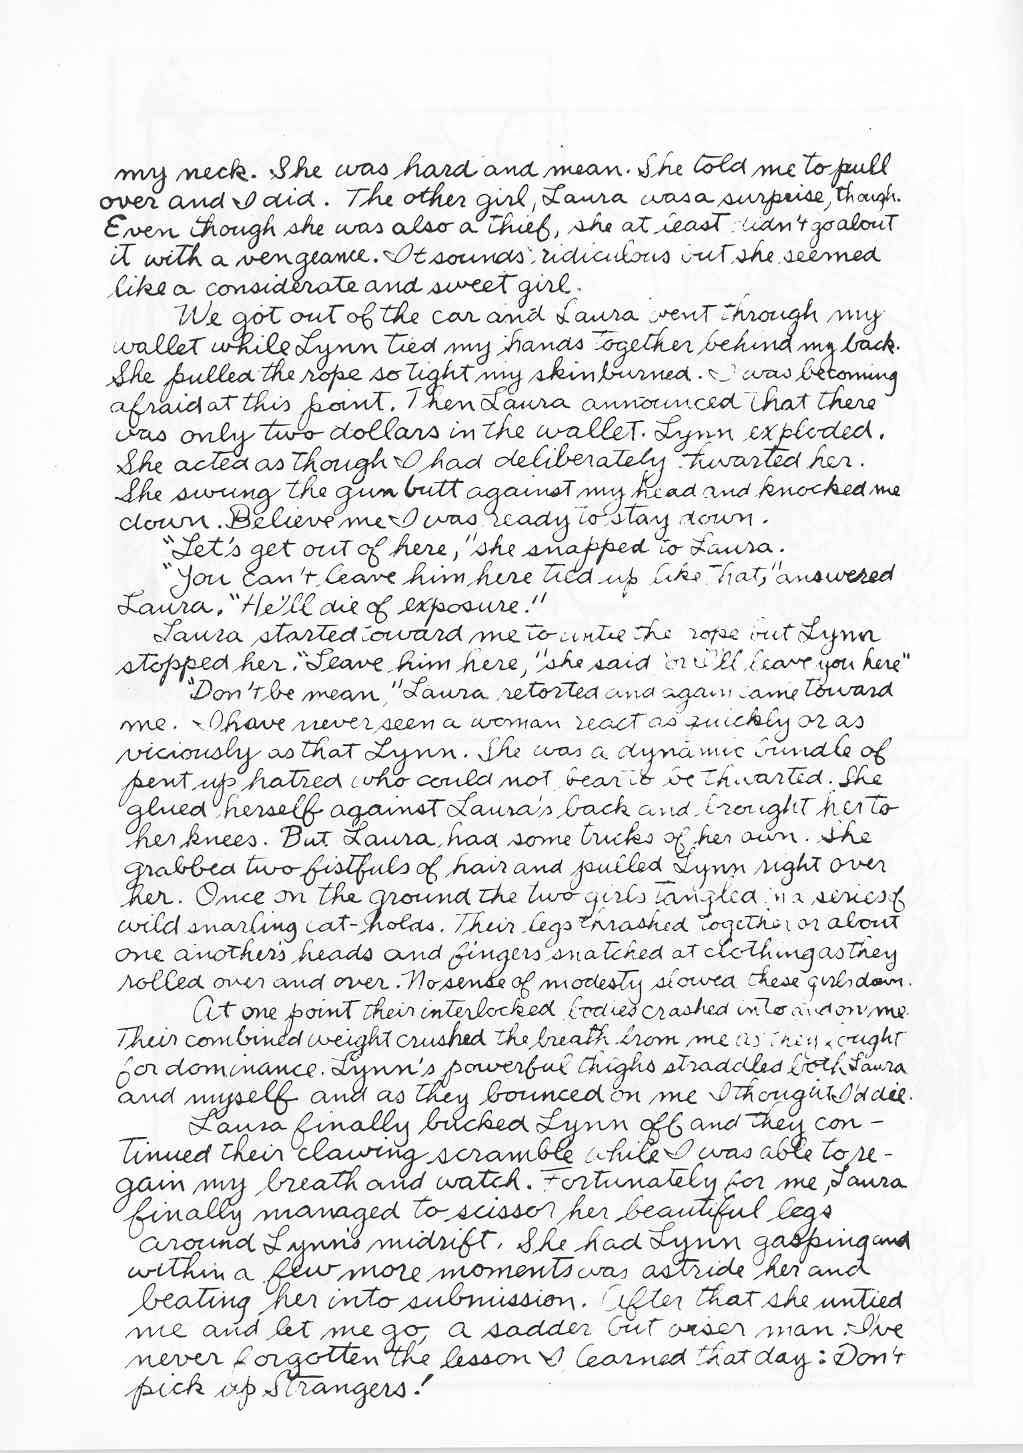 my neck. She was hard and mean. She told me to pull
over and I did. The other girl, Laura was a surprise, though.
Even though she was also a thief, she at least didn't go about
it with a vengeance. It sounds ridiculous but she seemed
like a considerate and sweet girl.
We got out of the car and Laura went through my
wallet while Lynn tied my hands together behind my back.
She pulled the rope so tight my skin burned. I was becoming
afraid at this point. Then Laura announced that there
was only two dollars in the wallet. Lynn exploded.
She acted as though I had deliberately thwarted her.
She swung the gun butt against my head and knocked me
down. Believe me I was ready to stay down.
"Let's get out of here," she snapped to Laura.
"You can't leave him here tied up like that," answered
Laura. "He'll die of exposure."
Laura started toward me to untie the rope but Lynn
stopped her. "Leave him here," she said "or I'll leave you here"
"Don't be mean," Laura retorted and again came toward
me. I have never seen a woman react as quickly or as
viciously as that Lynn. She was a dynamic bundle of
pent up hatred who could not bear to be thwarted. She
glued herself against Laura's back and brought her to
her knees. But Laura had some tricks of her own. She
grabbed two fistfuls of hair and pulled Lynn right over
her. Once on the ground the two girls tangled in a series of
wild snarling cat-holds. Their legs thrashed together or about
one another's heads and fingers snatched at clothing as they
rolled over and over. No sense of modesty slowed these girls down.
At one point their interlocked bodies crashed into and on me.
Their combined weight crushed the breath from me as they fought
for dominance. Lynn's powerful thighs straddled both Laura
and myself and as they bounced on me I thought I'd die.
Laura finally bucked Lynn off and they con-
tinued their clawing scramble while I was able to re-
gain my breath and watch. Fortunately for me, Laura
finally managed to scissor her beautiful legs
around Lynn's midrift. She had Lynn gasping and
within a few more moments was astride her and
beating her into submission. After that she untied
me and let me go, a sadder but wiser man. I've
never forgotten the lesson I learned that day: Don't
pick up Strangers!